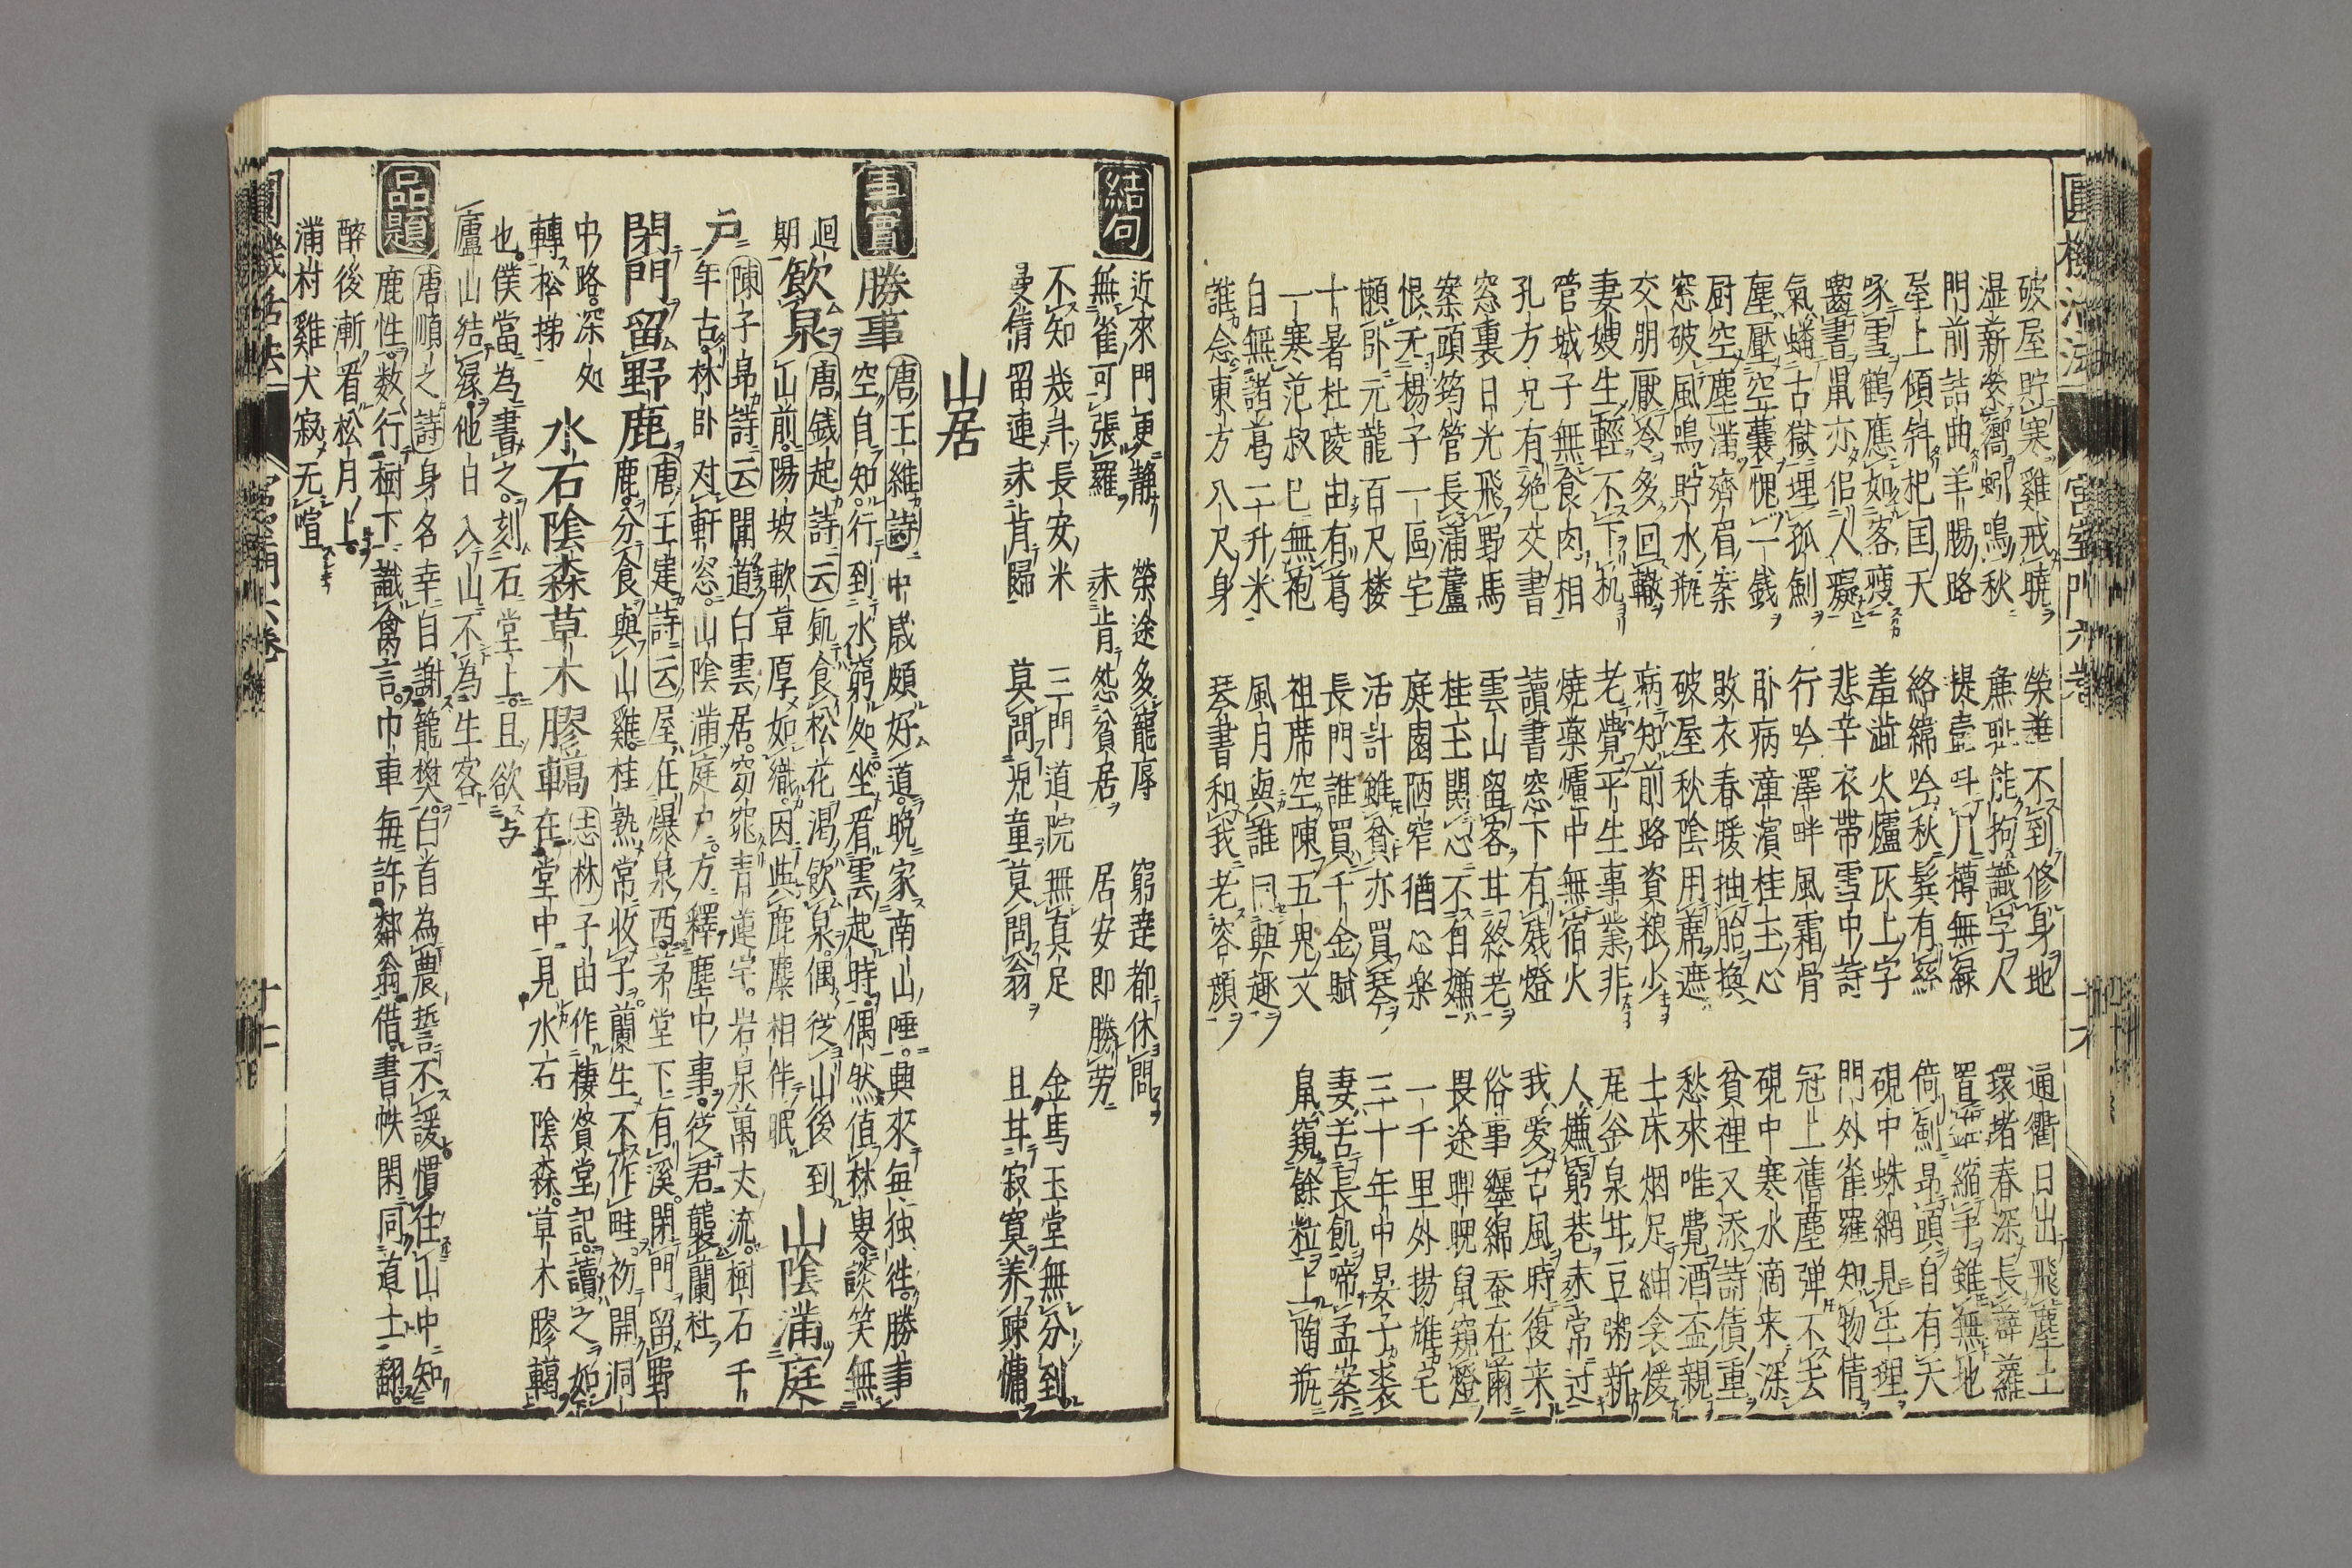 破屋貯寒雞戒曉 榮華不到修身地 通衢日出飛塵土
湿薪鳴秋 能拘識字人 環堵春深長薜蘿
門前詰曲羊腸路 提壺 樽無緑 縮手雖無地
屋上傾斜杞国天 絡緯吟秋鬂有絲 倚劍昂頭自有天
啄雪鶴應如客瘦 羞澁火爐灰上字 硯中蛛網見生理
書鼠亦佀人癡 悲辛衣帶雪中詩 門外雀羅知物情
氣蟠古獄埋孤劍 行吟澤畔風霜骨 冠上舊塵弾不去
塵壓空囊愧一銭 卧病漳濱桂玉心 硯中寒水滴来深
厨空塵滿齊眉案 敗衣春暖抽胎換 貧裡又添詩債重
窓破風鳴貯水瓶 破屋秋陰用蓆遮 愁來唯覺酒盃親
交朋厭冷多回轍 病知前路資粮少 土床烟足紬衾煖
妻嫂生輕不下机 老覺平生事業非 瓦釜泉甘豆粥新
管城子無食肉相 焼藥爐中無宿火 人嫌窮巷未常过
孔方兄有絶交書 讀書窓下有残燈 我愛古風時復来
窓裏日光飛野馬 雲山留客甘終老 俗事纒綿蚕在薾
案頭筠管長蒲蘆 桂玉関心不自嫌 畏途睥睨鼠窺燈
恨无楊子一區宅 庭園陋窄猶心楽 一千里外揚雄宅
懶卧元龍百尺楼 活計雖貧亦買琴 三十年中晏子裘
十暑杜陵由有葛 長門誰買千金賦 妻苦長飢啼孟案
一寒范叔已無袍 祖席空陳五鬼文 鼠窺餘粒上陶瓶
自無諸葛二升米 風月與誰同興趣
誰念東方八尺身 琴書和我老容顔
結句 近來門更静 榮途多寵辱 窮達都休問
無雀可張羅 未肯怨貧居 居安即勝労
不知幾斗長安米 三門道院無真足 金馬玉堂無分到
曼情留連未肯歸 莫問児童莫問翁 且甘寂寞养踈慵
山居
事實 勝事 唐王維詩 中歳頗好道晩家南山陲興來每独徃勝事
空自知行到水窮处坐看雲起時偶然值林叟談笑無
迴期 飲泉 唐銭起詩云 飢食松花渇飲泉偶従山後到 山陰滿庭
山前陽坡軟草厚如織因與鹿麋相伴眠
戸 陳子昻詩云 開道白雲居窈窕青蓮宇岩泉萬丈流樹石千
年古林卧对軒窓山陰滿庭户方釋塵中事従君襲蘭杜
閉門留野鹿 唐王建詩云 屋在瀑泉西茅堂下有溪閉門留野
鹿分食與山雞桂熟常收子蘭生不作畦初開洞
中路深处 水石陰森草木膠轕 志林 子由作棲賢堂記讀之如
轉松梯 在堂中見水石陰森草木膠轕
也僕當為書之刻石堂上且欲与
廬山結縁他日入山不為生客
品題 唐順之詩 身名幸自謝籠樊白首為農誓不諼慣住山中知
鹿性数行樹下識禽言巾車每許鄰翁借書帙閑同道士翻
醉後漸看松月上
滿村雞犬寂无喧